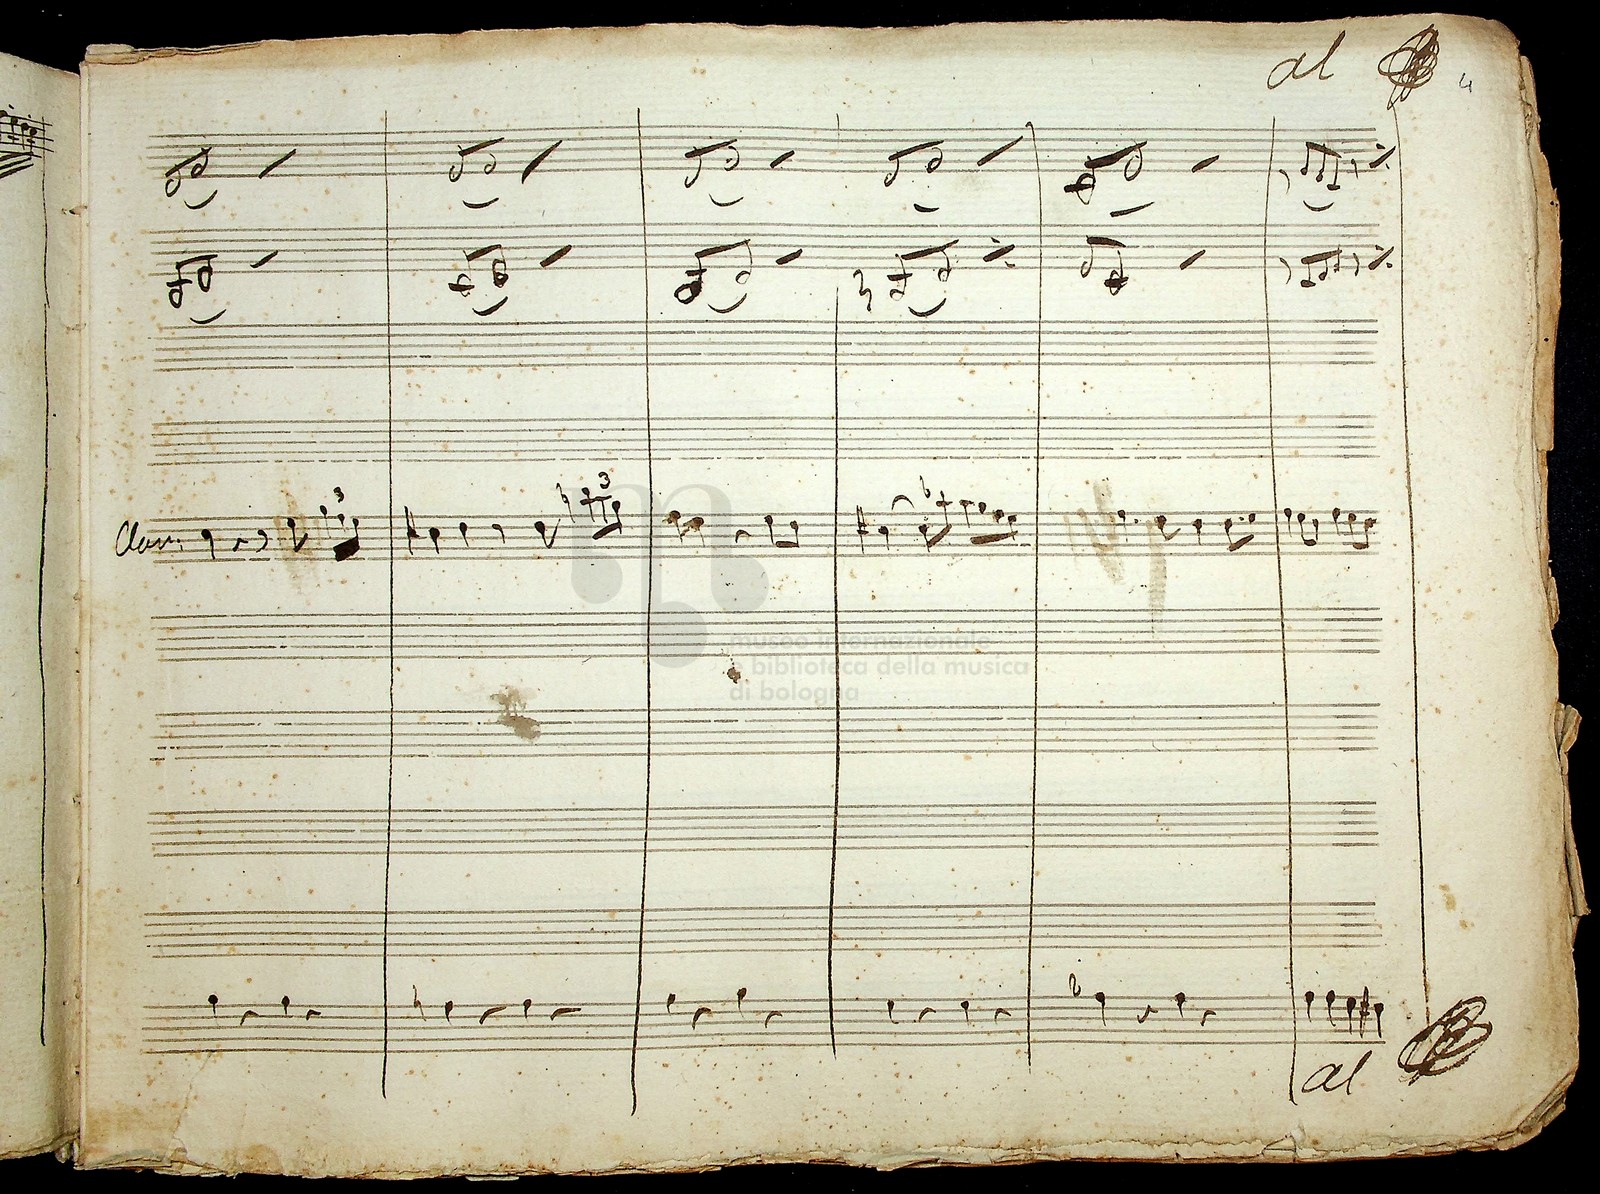 al
4
3
3
Clar:
museo internazionale
e biblioteca della musica
di bologna
al